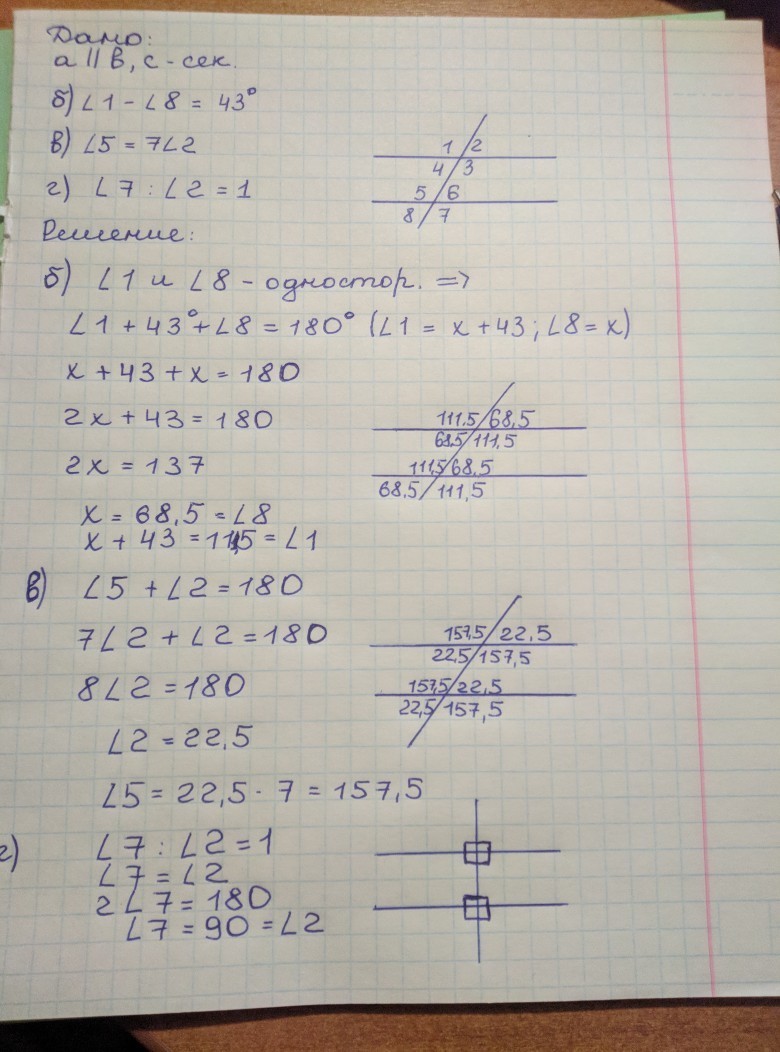 Дано:
a || b, c - сек.
б) ∠1 - ∠8 = 43°
в) ∠5 = 7∠2
г) ∠7 : ∠2 = 1
1 2
4 3
5 6
8 7
Решение:
б) ∠1 и ∠8 - одностор. =>
∠1 + 43° + ∠8 = 180° (∠1 = x + 43; ∠8 = x)
x + 43 + x = 180
2x + 43 = 180
2x = 137
x = 68,5 = ∠8
x + 43 = 111,5 = ∠1
111,5 68,5
68,5 111,5
111,5 68,5
68,5 111,5
в) ∠5 + ∠2 = 180
7∠2 + ∠2 = 180
8∠2 = 180
∠2 = 22,5
∠5 = 22,5 · 7 = 157,5
157,5 22,5
22,5 157,5
157,5 22,5
22,5 157,5
г) ∠7 : ∠2 = 1
∠7 = ∠2
2∠7 = 180
∠7 = 90 = ∠2